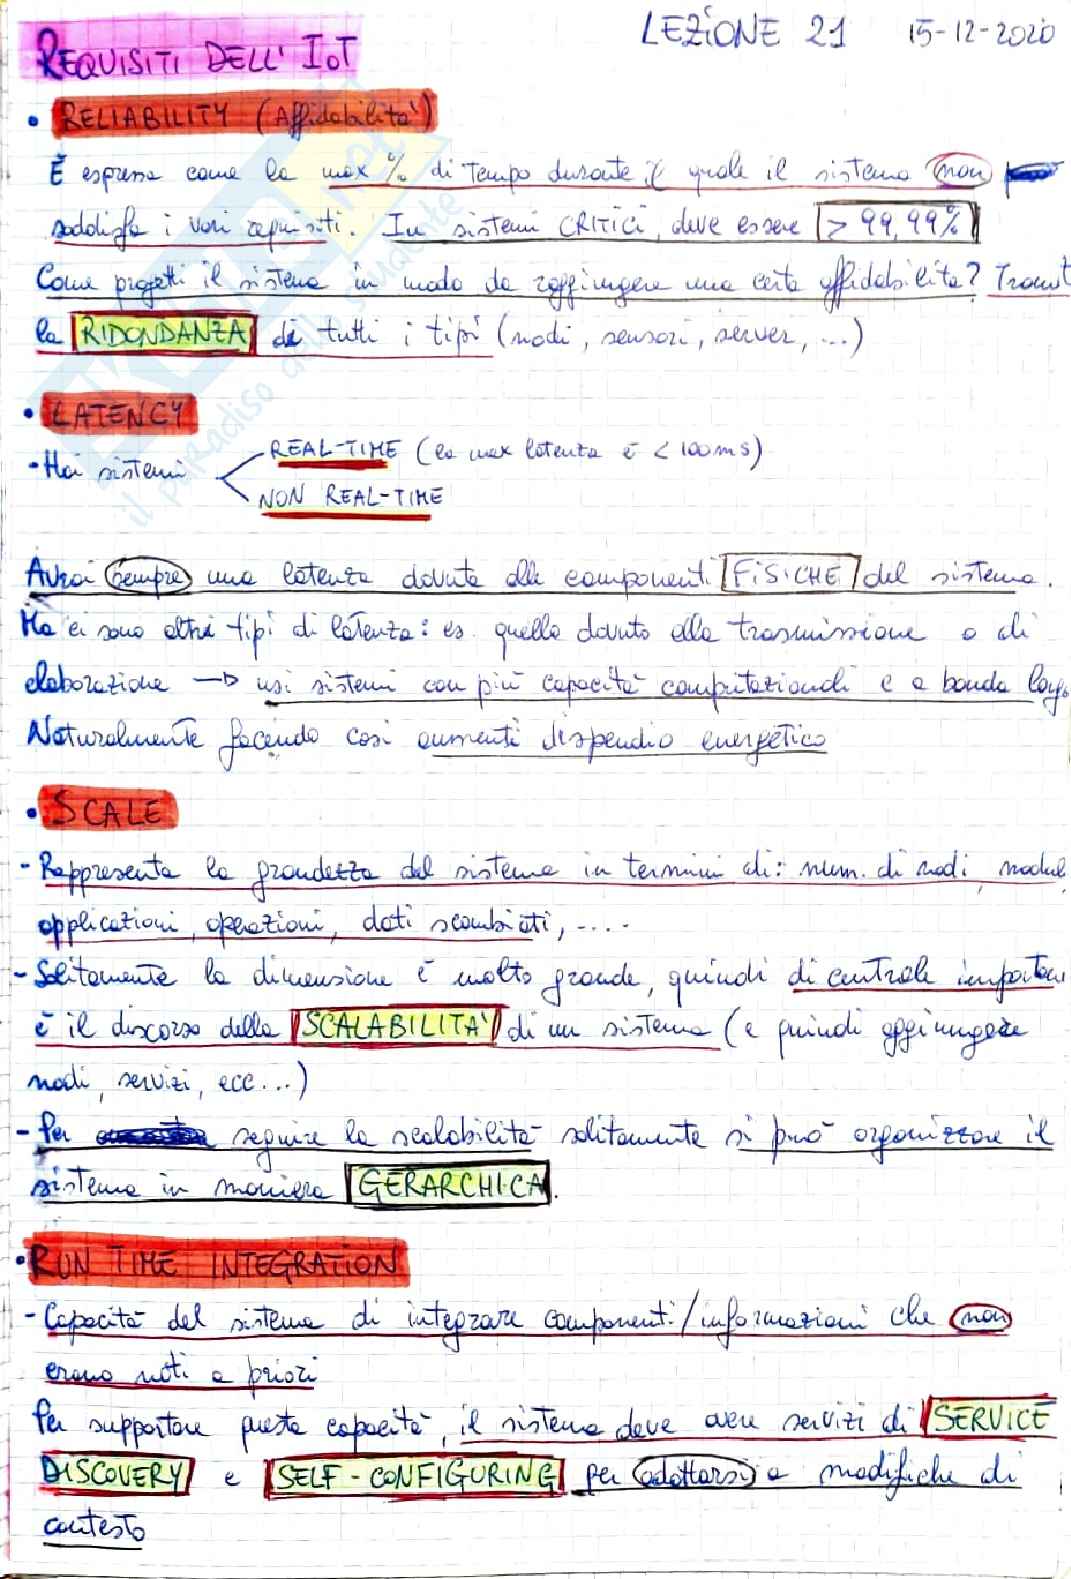 LEZIONE 21 15-12-2020
REQUISITI DELL' IoT
• RELIABILITY (Affidabilità)
È espressa come la max % di tempo durante il quale il sistema non
soddisfa i vari requisiti. In sistemi CRITICI, deve essere > 99,99%
Come progetti il sistema in modo da raggiungere una certa affidabilità? Tramit
la RIDONDANZA di tutti i tipi (nodi, sensori, server, ...)
• LATENCY
- Hai sistemi
REAL-TIME (la max latenza è < 100ms)
NON REAL-TIME
Avrai sempre una latenza dovuta alle componenti FISICHE del sistema.
Ma ci sono altri tipi di latenza: es. quella dovuta alla trasmissione o di
elaborazione → usi sistemi con più capacità computazionali e a banda larga
Naturalmente facendo così aumenti dispendio energetico
• SCALE
- Rappresenta la grandezza del sistema in termini di: num. di nodi, modul
applicazioni, operazioni, dati scambiati, ....
- Solitamente la dimensione è molto grande, quindi di centrale importan
è il discorso della SCALABILITÀ di un sistema (e quindi aggiungere
nodi, servizi, ecc...)
- Per seguire la scalabilità solitamente si può organizzare il
sistema in maniera GERARCHICA.
• RUN TIME INTEGRATION
- Capacità del sistema di integrare componenti/informazioni che non
erano noti a priori
Per supportare questa capacità, il sistema deve avere servizi di SERVICE
DISCOVERY e SELF-CONFIGURING per adattarsi a modifiche di
contesto
il paradiso dello studente